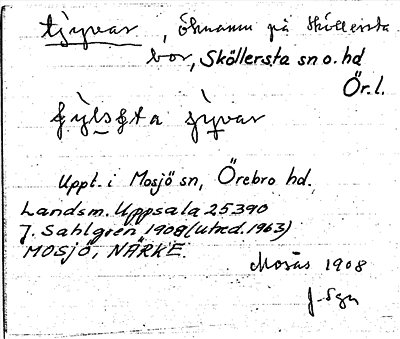 tjyvar, öknamn på Sköllersta
bor, Sköllersta sn o. hd
Ör. l.
Uppt. i Mosjö sn, Örebro hd.
Landsm. Uppsala 25390
J. Sahlgren 1908 (utred. 1963)
MOSJÖ, NÄRKE.
Mosås 1908
J. Sgn